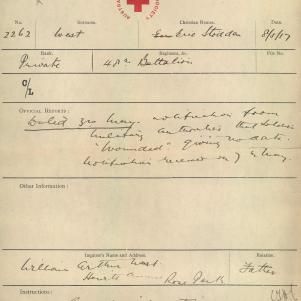 SOCIETY
No. Surname. Christian Names. Date.
2262 West Eric Stoddon 8/5/17
Rank. Regiment, &c. File No.
Private 48th Battalion
C/L
OFFICIAL REPORTS:
Dated 3rd May. notification from
military authorities that Soldier
"Wounded" giving no date.
Notification received on 7th May.
Other Information:
Inquirer's Name and Address. Relation.
William Arthur West Father
Rose Park
Instructions: